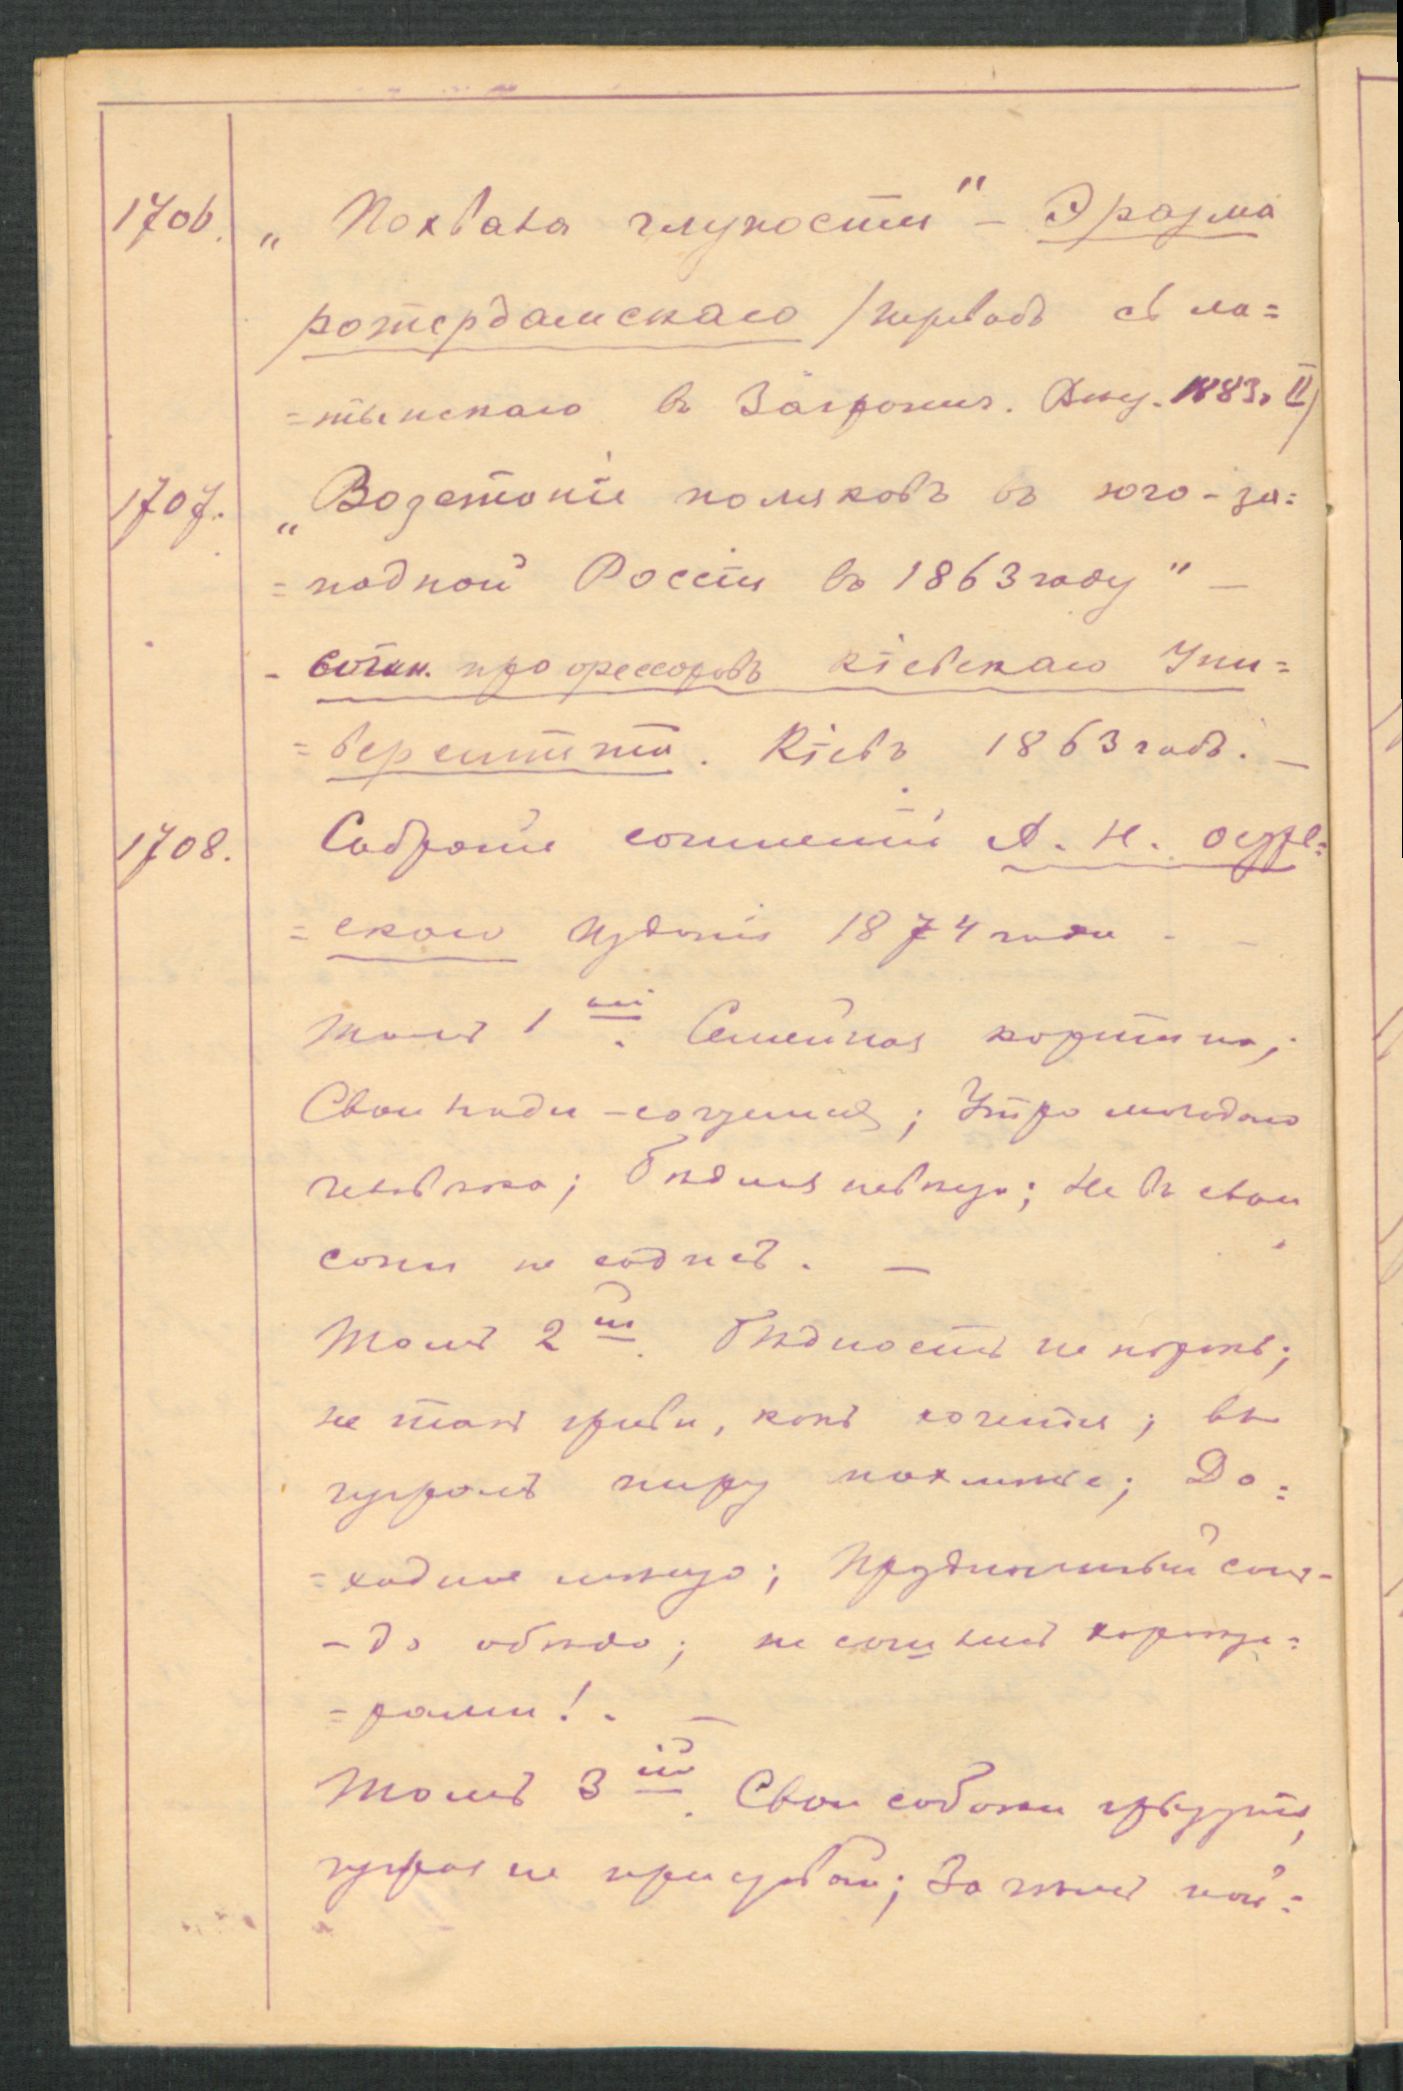 1706. „Похвала глупости" – Эразма
ротердамскаго /переводъ съ ла=
=тынскаго въ Заграничн. 1883. II/
1707. „Возстаніе поляковъ въ юго-за=
=падной Россіи въ 1863 году" –
- сочин. профессоровъ Кіевскаго Уни=
=верситета. Кіевъ 1863 годъ. –
1708. Собраніе сочиненій А. Н. Остро=
=скаго изданія 1874 года - -
Томъ 1ый. Семейная картина;
Свои люди – сочтемся; Утро молодаго
человѣка; Бѣдная невѣста; Не въ свои
сани не садись. –
Томъ 2ой. Бѣдность не порокъ;
не такъ живи, какъ хочется; въ
чужомъ пиру похмѣлье; До=
=ходное мѣсто; Праздничный сонъ-
-до обѣда; не сошлись характе=
=рами!. –
Томъ 3ій. Свои собаки грызутся,
чужая не приставай; За чѣмъ пой=